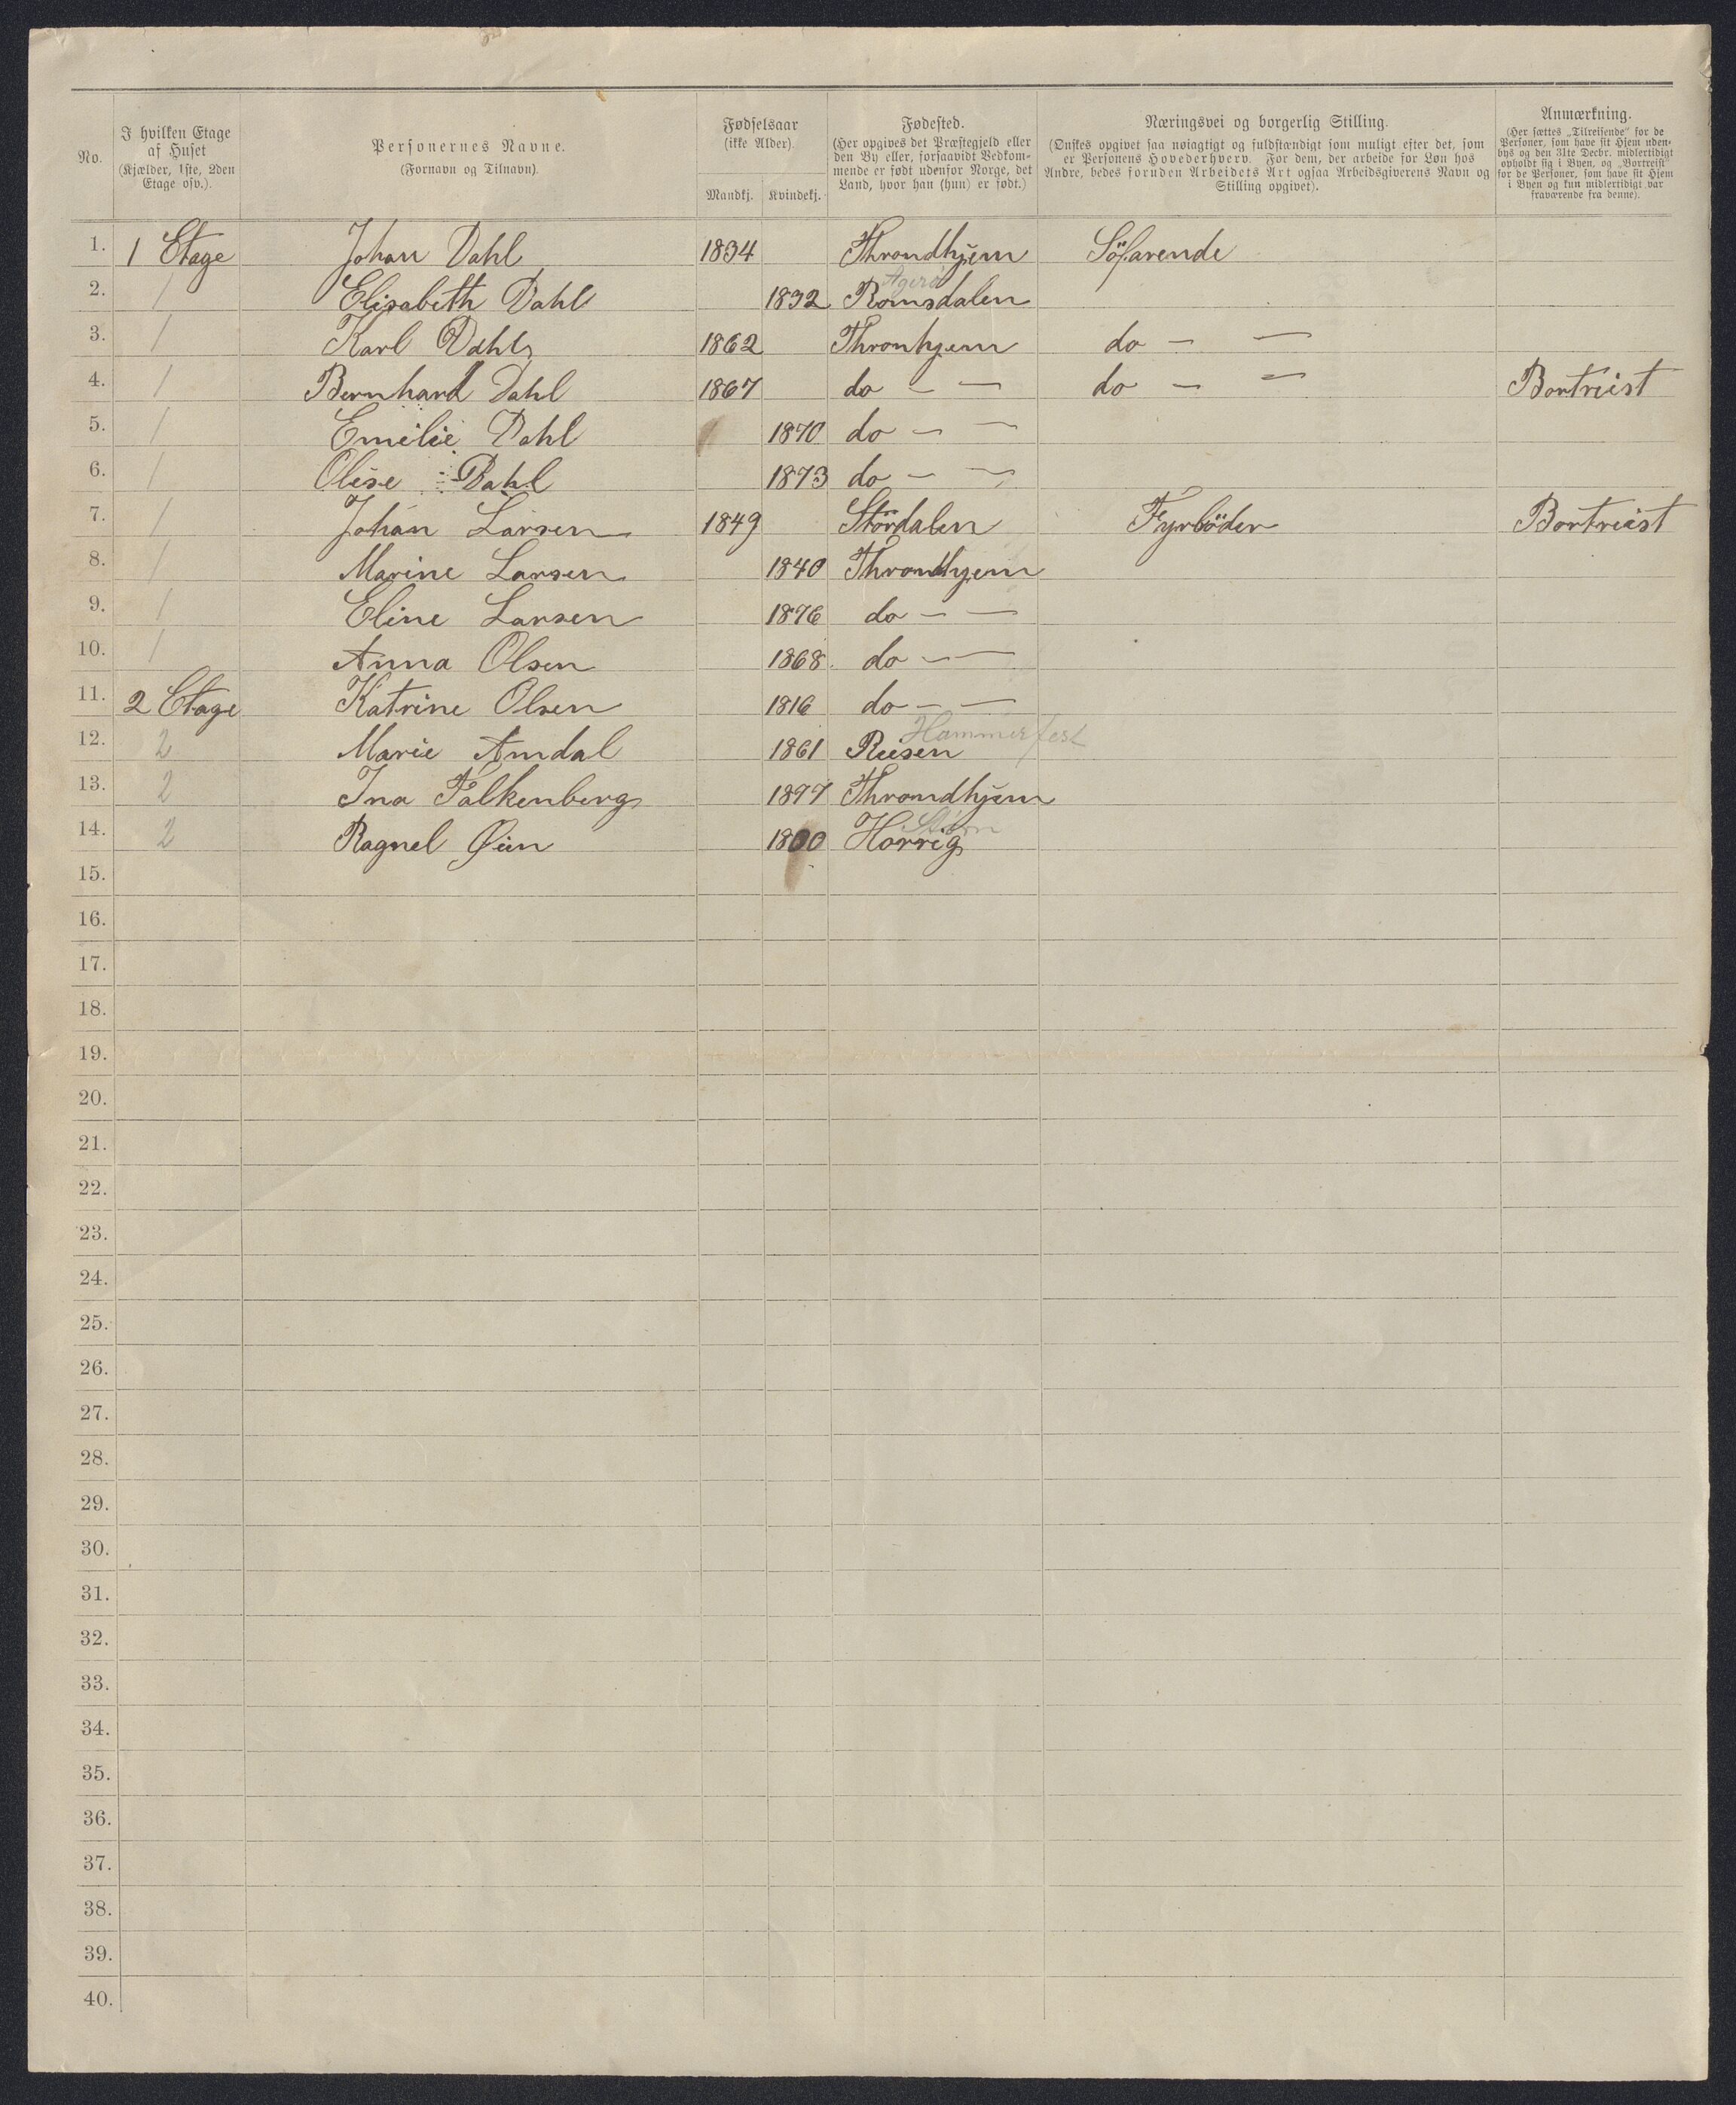 No.
I hvilken Etage af Huset
(Kjælder, 1ste, 2den Etage osv.).
Personernes Navne.
(Fornavn og Tilnavn).
Fødselsaar
(ikke Alder).
Mandkj. Kvindekj.
Fødested.
(Her opgives det Præstegjeld eller den By eller, forsaavidt Vedkommende er født udenfor Norge, det Land, hvor han (hun) er født.)
Næringsvei og borgerlig Stilling.
(Ønskes opgivet saa nøiagtigt og fuldstændigt som muligt efter det, som er Personens Hovederhverv. For dem, der arbeide for Løn hos Andre, bedes foruden Arbeidets Art ogsaa Arbeidsgiverens Navn og Stilling opgivet).
Anmærkning.
(Her sættes „Tilreisende“ for de Personer, som have sit Hjem udenbys og den 31te Decbr. midlertidigt opholdt sig i Byen, og „Bortreist“ for de Personer, som have sit Hjem i Byen og kun midlertidigt var fraværende fra denne).
1. 1 Etage Johan Dahl 1834 Throndhjem Söfarende
2. 1 Elisabeth Dahl 1832 Agerö Romsdalen
3. 1 Karl Dahl 1862 Thronhjem do — —
4. 1 Bernhard Dahl 1867 do — — do — — Bortreist
5. 1 Emilie Dahl 1870 do — —
6. 1 Olise Dahl 1873 do — —
7. 1 Johan Larsen 1849 Stördalen Fyrböder Bortreist
8. 1 Marine Larsen 1840 Throndhjem
9. 1 Eline Larsen 1876 do — —
10. 1 Anna Olsen 1868 do — —
11. 2 Etage Katrine Olsen 1816 do — —
12. 2 Marie Amdal 1861 Reisen Hammerfest
13. 2 Ina Falkenberg 1877 Throndhjem
14. 2 Ragnel Øien 1800 Horrig
15.
16.
17.
18.
19.
20.
21.
22.
23.
24.
25.
26.
27.
28.
29.
30.
31.
32.
33.
34.
35.
36.
37.
38.
39.
40.